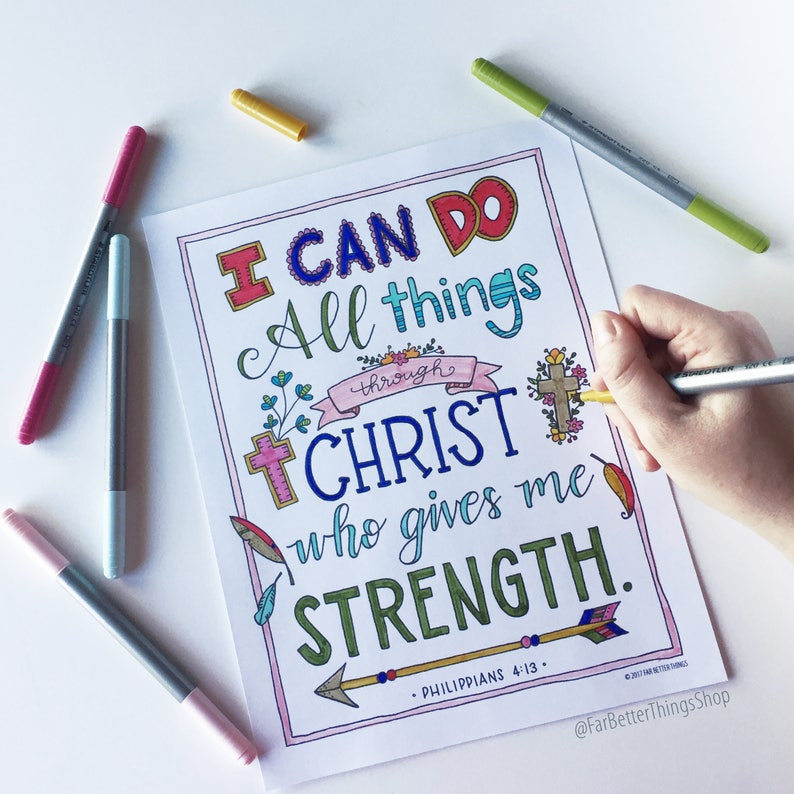 I CAN DO
All things
through
CHRIST
who gives me
STRENGTH.
• PHILIPPIANS 4:13 •
© 2017 FAR BETTER THINGS
@FarBetterThingsShop
STAEDTLER
STAEDTLER